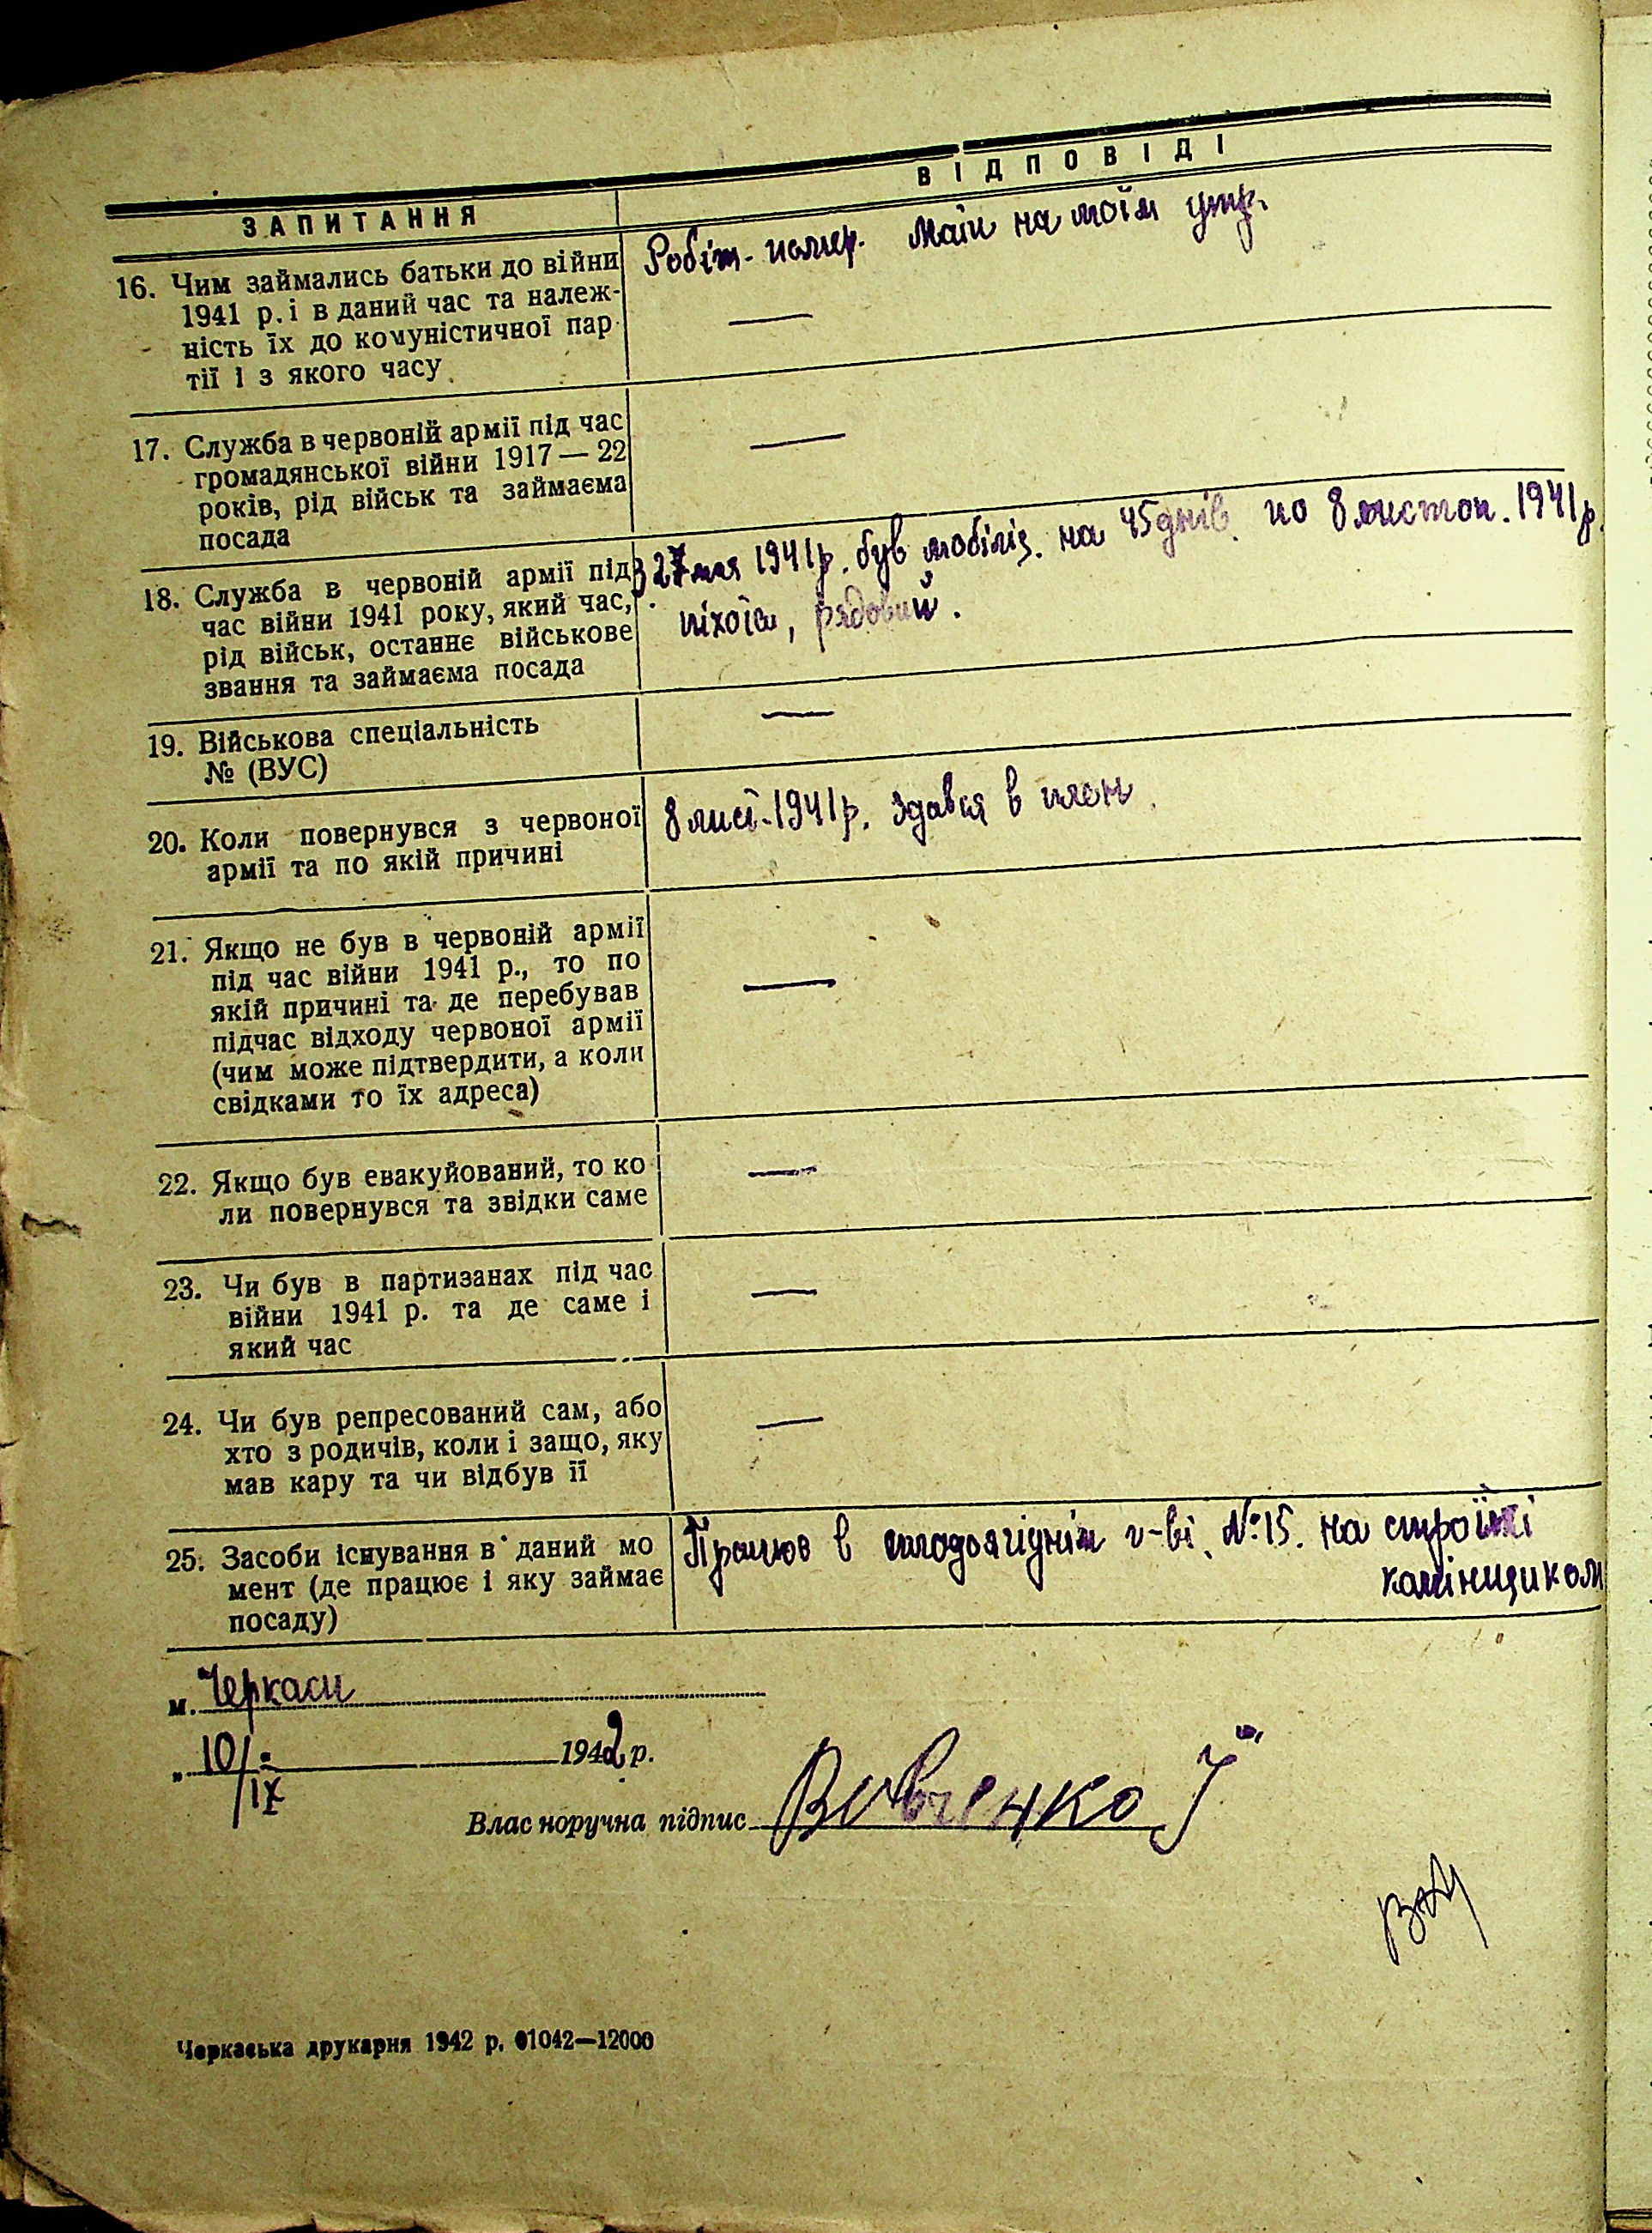 ЗАПИТАННЯ
ВІДПОВІДІ
16. Чим займались батьки до війни
1941 р. і в даний час та належ-
ність їх до комуністичної пар
тії і з якого часу
Робіт. помер. Мати на моїм утр.
—
17. Служба в червоній армії під час
громадянської війни 1917 — 22
років, рід військ та займаєма
посада
—
18. Служба в червоній армії під
час війни 1941 року, який час,
рід військ, останнє військове
звання та займаєма посада
З 27 мая 1941 р. був мобіліз. на 45 днів по 8 листоп. 1941 р.
піхота, рядовий.
19. Військова спеціальність
№ (ВУС)
—
20. Коли повернувся з червоної
армії та по якій причині
8 лист. 1941 р. здався в плен.
21. Якщо не був в червоній армії
під час війни 1941 р., то по
якій причині та де перебував
підчас відходу червоної армії
(чим може підтвердити, а коли
свідками то їх адреса)
—
22. Якщо був евакуйований, то ко
ли повернувся та звідки саме
—
23. Чи був в партизанах під час
війни 1941 р. та де саме і
який час
—
24. Чи був репресований сам, або
хто з родичів, коли і защо, яку
мав кару та чи відбув її
—
25. Засоби існування в даний мо
мент (де працює і яку займає
посаду)
Працюю в плодоягіднім г-ві. №15. на стройкі
камінщиком
м. Черкаси
„ 10/IX 1942 р.
Власноручна підпис Вовченко І
Черкаська друкарня 1942 р. 01042—12000